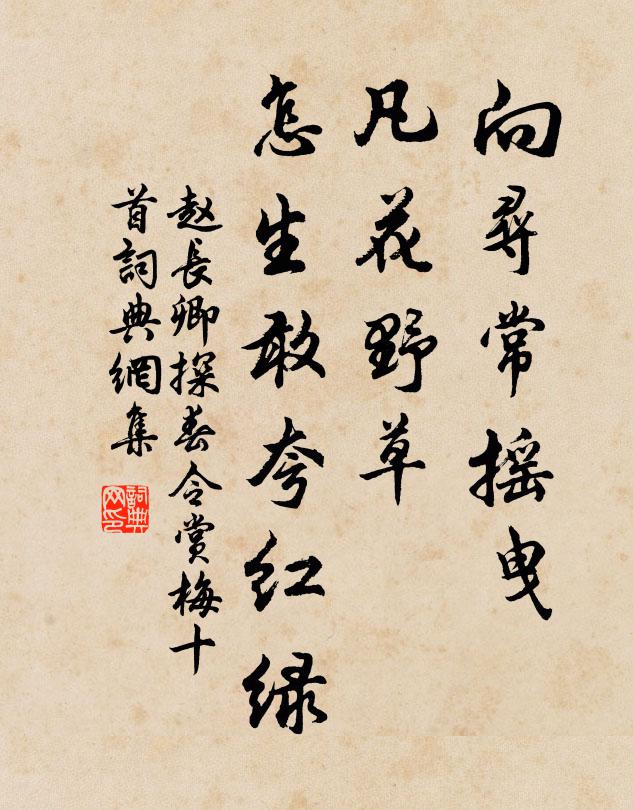 向尋常摇曳
凡花野草
怎生敢夸红緑
赵長卿探春令赏梅十
首詞典網集
詞典
网印